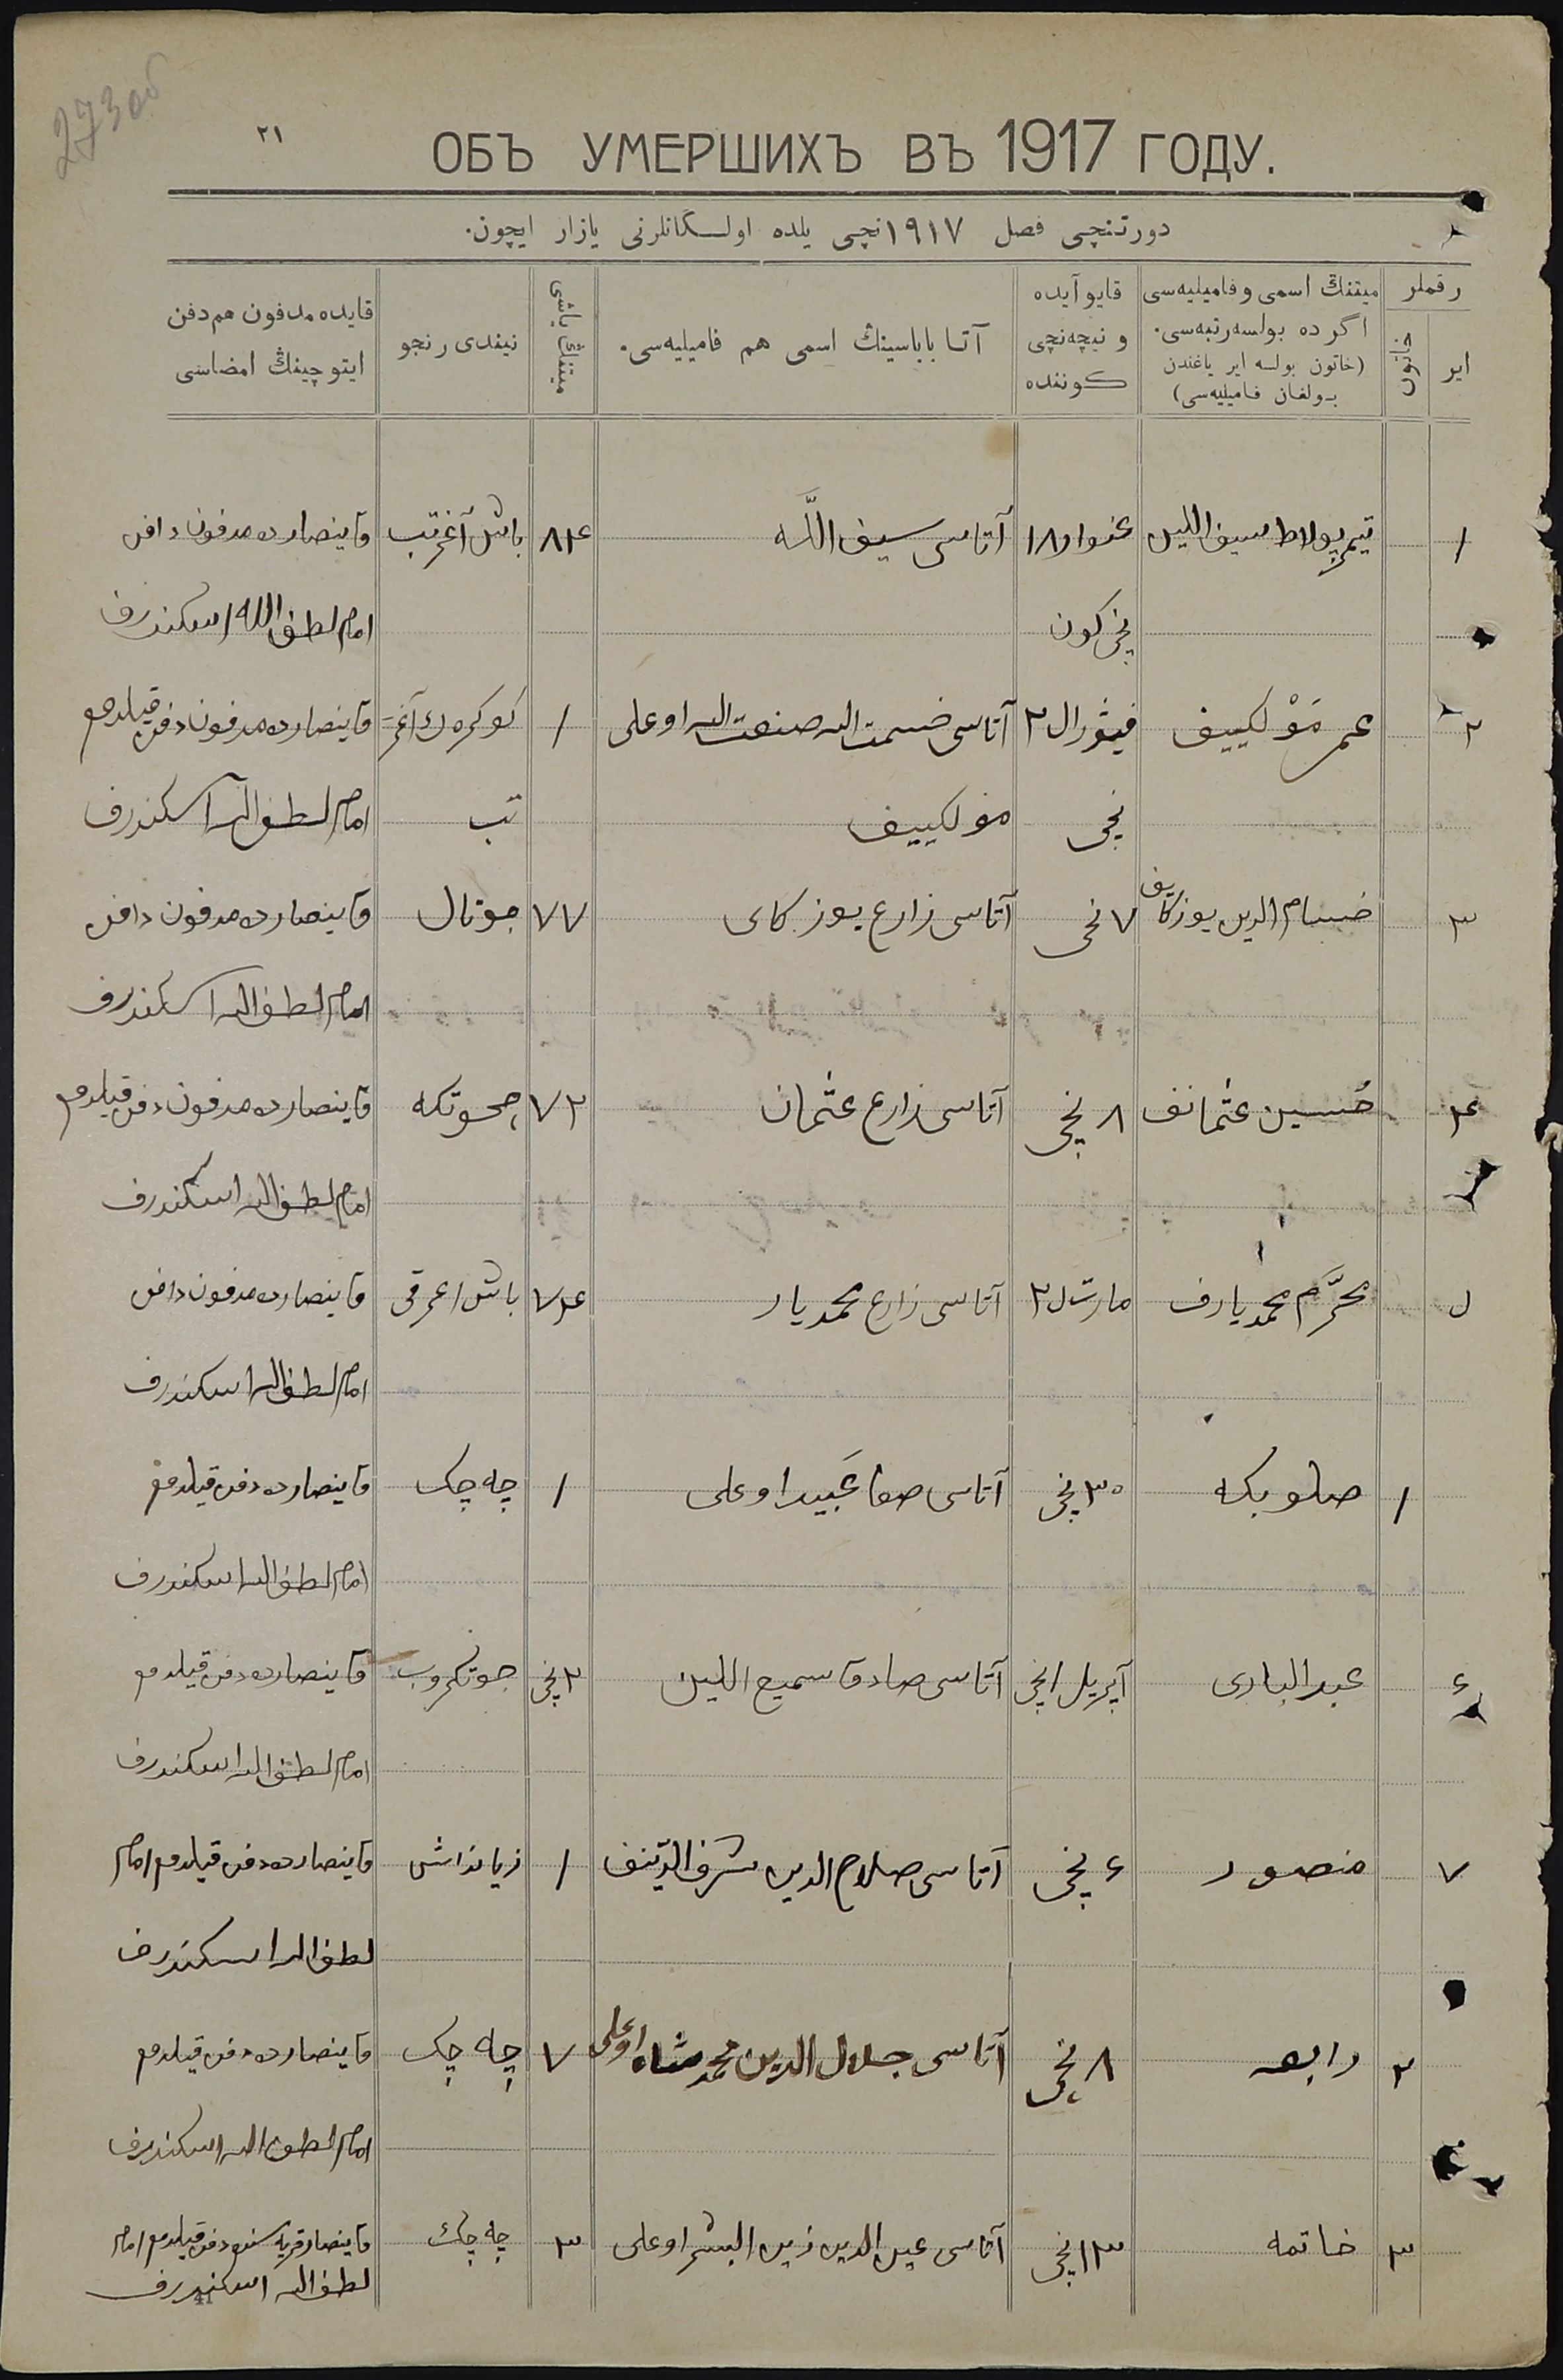 273об
٢١
ОБЪ УМЕРШИХЪ ВЪ 1917 ГОДУ.
دورتنچی فصل ١٩١٧نچی یلده اولـسكانلرنی یازار ایچون.
رقملر
ایر
خاتون
میتنڭ اسمی و فامیلیه‌سی
اگر ده بولسه رتبه‌سی.
(خاتون بولسه ایر یاغندن
بـولغان فامیلیه‌سی)
قایو آیده
و نیچه‌نچی
كوننده
آتـا باباسینڭ اسمی هم فامیلیه‌سی.
میتنڭ یاشی
نیندی رنجو
قایده مدفون هم دفن
ایتوچینڭ امضاسی
١ تیمر پولاط سیف اللین غنوار ١٨ آتاسی سیف اللّه ٨۴ باش آغرتب قاینصارده مدفون دافن
نچی كون امام لطف الله اسكندرف
٢ عمر مَوْلكییف فیۋرال ٢ آتاسی خسمت الله صنعت الله اوغلی ١ كوكره‌ك آغر قاینصارده مدفون دفن قیلدم
نچی مولكییف تب امام لطف الله اسكندرف
٣ خسام الدین یوزكایف ٧ نچی آتاسی زارع یوزكای ٧٧ جوتال قاینصارده مدفون دافن
امام لطف الله اسكندرف
۴ حُسین عثمانف ٨ نچی آتاسی زارع عثمان ٧٢ قاینصارده مدفون دفن قیلدم
امام لطف الله اسكندرف
محرَّم محمدیارف مارت آتاسی زارع محمدیار ٧۴ باش قاینصارده مدفون دافن
امام لطف الله اسكندرف
١ صلوبكه ٣٠ نچی آتاسی صفا عَبید اوغلی ١ چه چك قاینصارده دفن قیلدم
امام لطف الله اسكندرف
۶ عبدالباری آپریل ١ نچی آتاسی صادق سمیع اللین ٢ نچی جوتكروب قاینصارده دفن قیلدم
امام لطف الله اسكندرف
٧ منصور ۶ نچی آتاسی صلاح الدین شرف الدّینف ١ زیانداش قاینصارده دفن قیلدم امام
لطف الله اسكندرف
٢ رابعه ٨ نچی آتاسی جلال الدین محمدشاه اوغلی ٧ چه چك قاینصارده دفن قیلدم
امام لطف الله اسكندرف
٣ خاتمه ١٣ نچی آتاسی عین الدین زین البشر اوغلی ٣ چه چك قاینصار قریه سنده دفن قیلدم امام
لطف الله اسكندرف
41